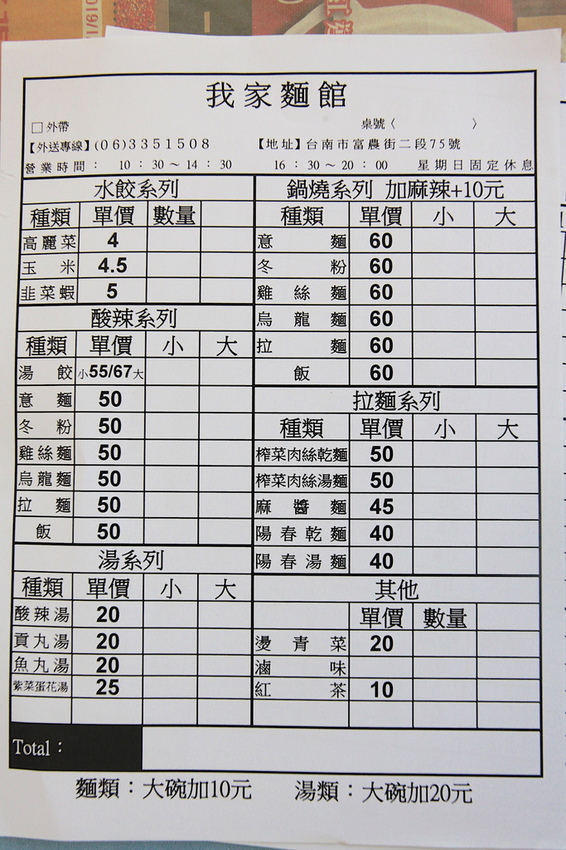 我家麵館
□外帶 桌號〈 〉
【外送專線】(06)3351508 【地址】台南市富農街二段75號
營業時間： 10：30～14：30 16：30～20：00 星期日固定休息
水餃系列
種類 單價 數量
高麗菜 4
玉米 4.5
韭菜蝦 5
酸辣系列
種類 單價 小 大
湯餃 小55/67大
意麵 50
冬粉 50
雞絲麵 50
烏龍麵 50
拉麵 50
飯 50
湯系列
種類 單價 小 大
酸辣湯 20
貢丸湯 20
魚丸湯 20
紫菜蛋花湯 25
鍋燒系列 加麻辣+10元
種類 單價 小 大
意麵 60
冬粉 60
雞絲麵 60
烏龍麵 60
拉麵 60
飯 60
拉麵系列
種類 單價 小 大
榨菜肉絲乾麵 50
榨菜肉絲湯麵 50
麻醬麵 45
陽春乾麵 40
陽春湯麵 40
其他
單價 數量
燙青菜 20
滷味
紅茶 10
Total：
麵類：大碗加10元 湯類：大碗加20元